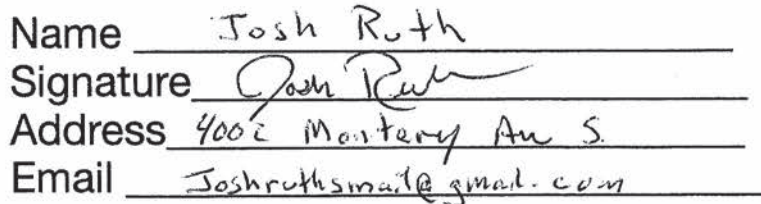 Name Josh Ruth
Signature Josh Ruth
Address 4002 Montery Av S.
Email Joshruthsmail@gmail.com